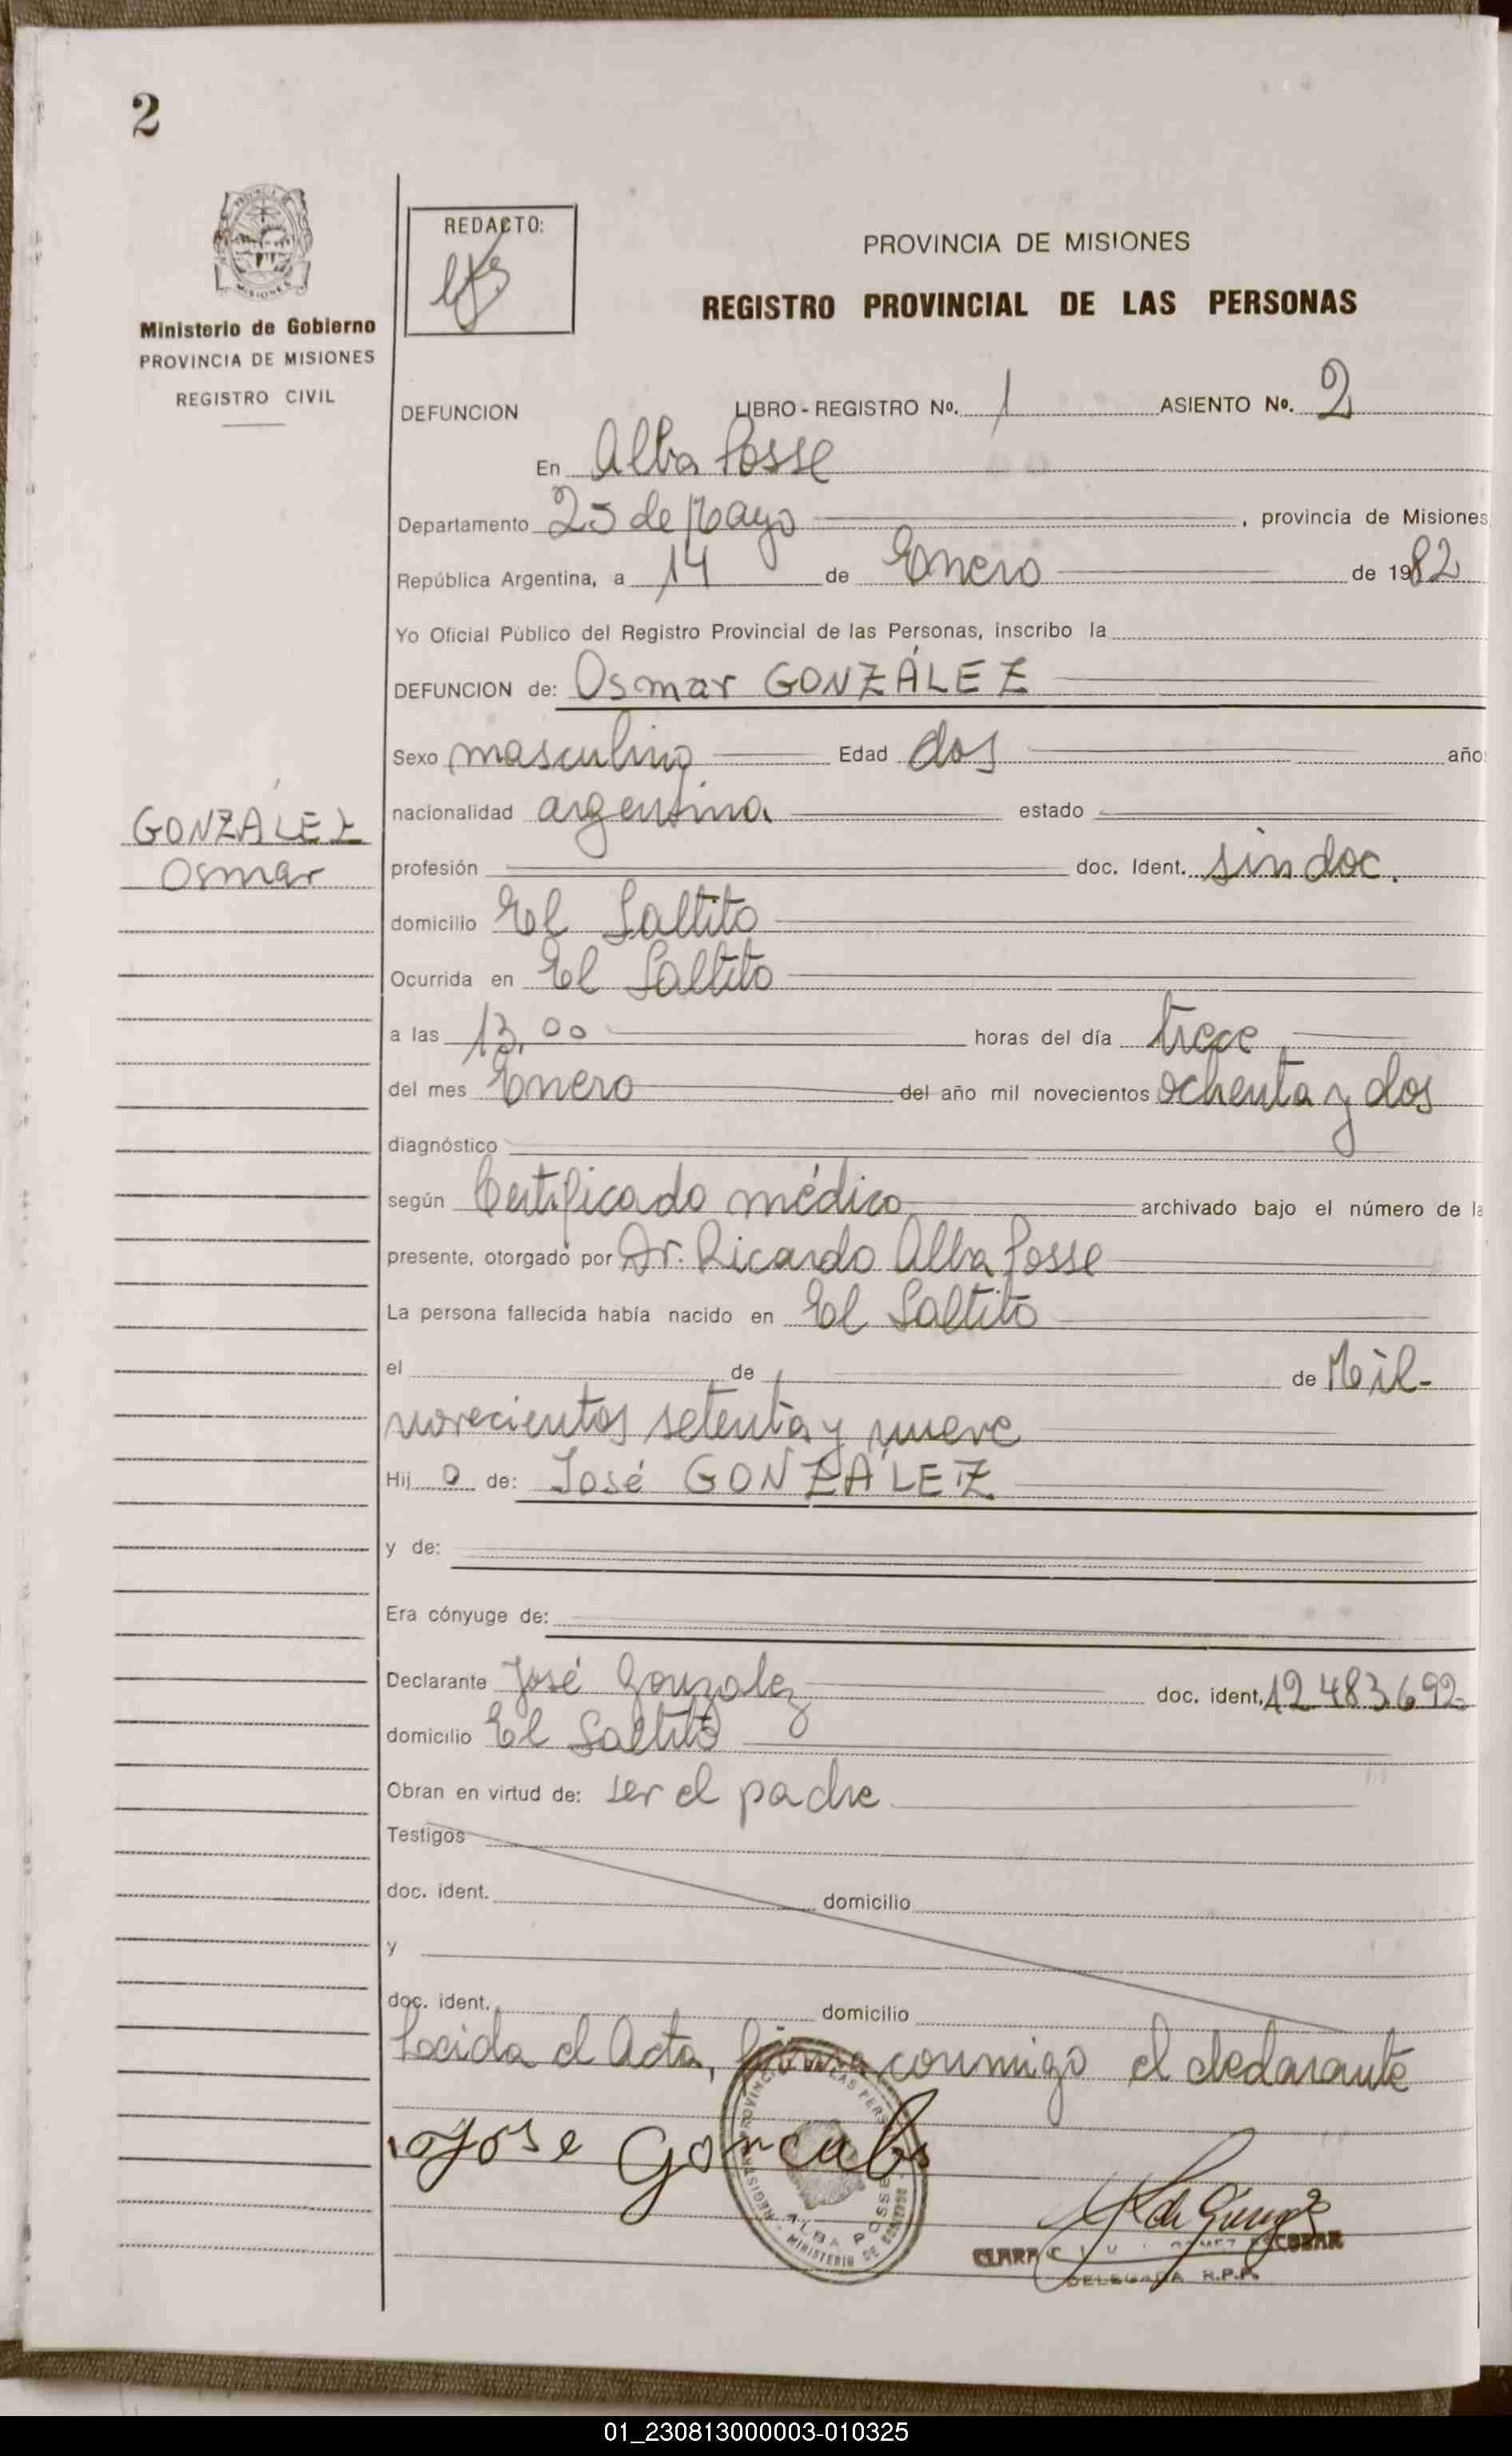 2
REDACTO:
PROVINCIA DE MISIONES
REGISTRO PROVINCIAL DE LAS PERSONAS
Ministerio de Gobierno
PROVINCIA DE MISIONES
REGISTRO CIVIL
DEFUNCION LIBRO - REGISTRO Nº. 1 ASIENTO Nº. 2
En Alba Posse
Departamento 25 de Mayo , provincia de Misiones
República Argentina, a 14 de Enero de 1982
Yo Oficial Público del Registro Provincial de las Personas, inscribo la
DEFUNCION de: Osmar GONZÁLEZ
Sexo masculino Edad dos año
nacionalidad argentina estado
GONZÁLEZ
Osmar
profesión doc. Ident. sin doc.
domicilio El Saltito
Ocurrida en El Saltito
a las 13,00 horas del día trece
del mes Enero del año mil novecientos ochenta y dos
diagnóstico
según Certificado médico archivado bajo el número de la
presente, otorgado por Dr. Ricardo Alba Posse
La persona fallecida había nacido en El Saltito
el de de Mil-
novecientos setenta y nueve
Hij o de: José GONZÁLEZ
y de:
Era cónyuge de:
Declarante José Gonzalez doc. ident. 12.483.692-
domicilio El Saltito
Obran en virtud de: ser el padre
Testigos
doc. ident. domicilio
y
doc. ident. domicilio
Leida el Acta, firma conmigo el declarante
Jose Goncales
ALBA POSSE
MINISTERIO DE GOBIERNO
CLARA GOMEZ ESCOBAR
DELEGADA R.P.P.
01_230813000003-010325